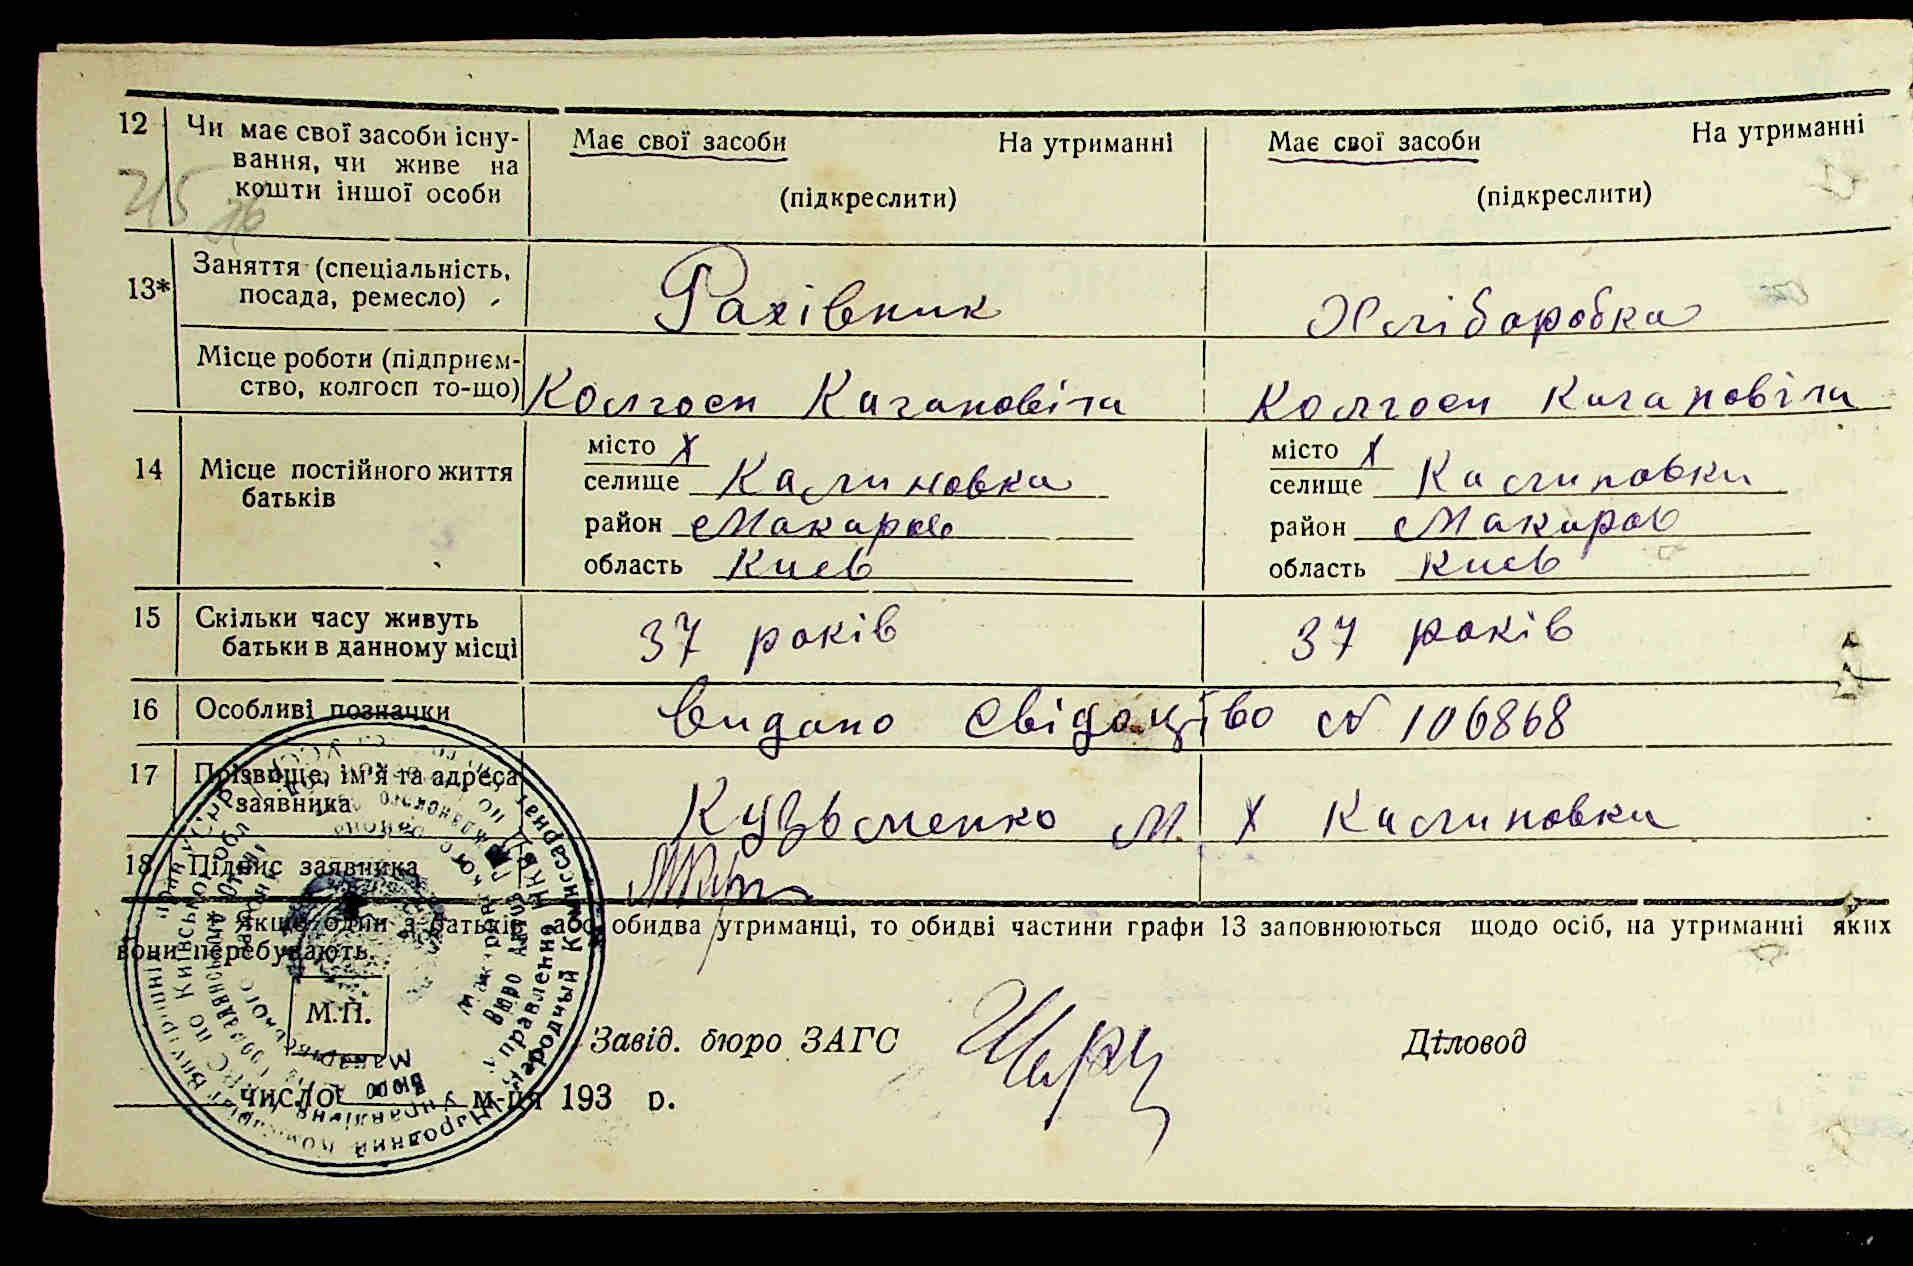 12 Чи має свої засоби існу- Має свої засоби На утриманні Має свої засоби На утриманні
вання, чи живе на
кошти іншої особи (підкреслити) (підкреслити)
215
13* Заняття (спеціальність,
посада, ремесло) Рахівник Хліборобка
Місце роботи (підприєм-
ство, колгосп то-що) Колгосп Кагановіча Колгосп Кагановіча
місто X місто X
14 Місце постійного життя селище Калиновка селище Калиновка
батьків район Макаров район Макаров
область Киев область Киев
15 Скільки часу живуть
батьки в данному місці 37 років 37 років
16 Особливі позначки Видано свідоцтво № 106868
17 Прізвище, ім'я та адреса
заявника Кузьменко М. X Калиновка
18 Підпис заявника
Якщо один з батьків або обидва утриманці, то обидві частини графи 13 заповнюються щодо осіб, на утриманні яких
вони перебувають.
М.П.
Завід. бюро ЗАГС Діловод
число м-ця 193 р.